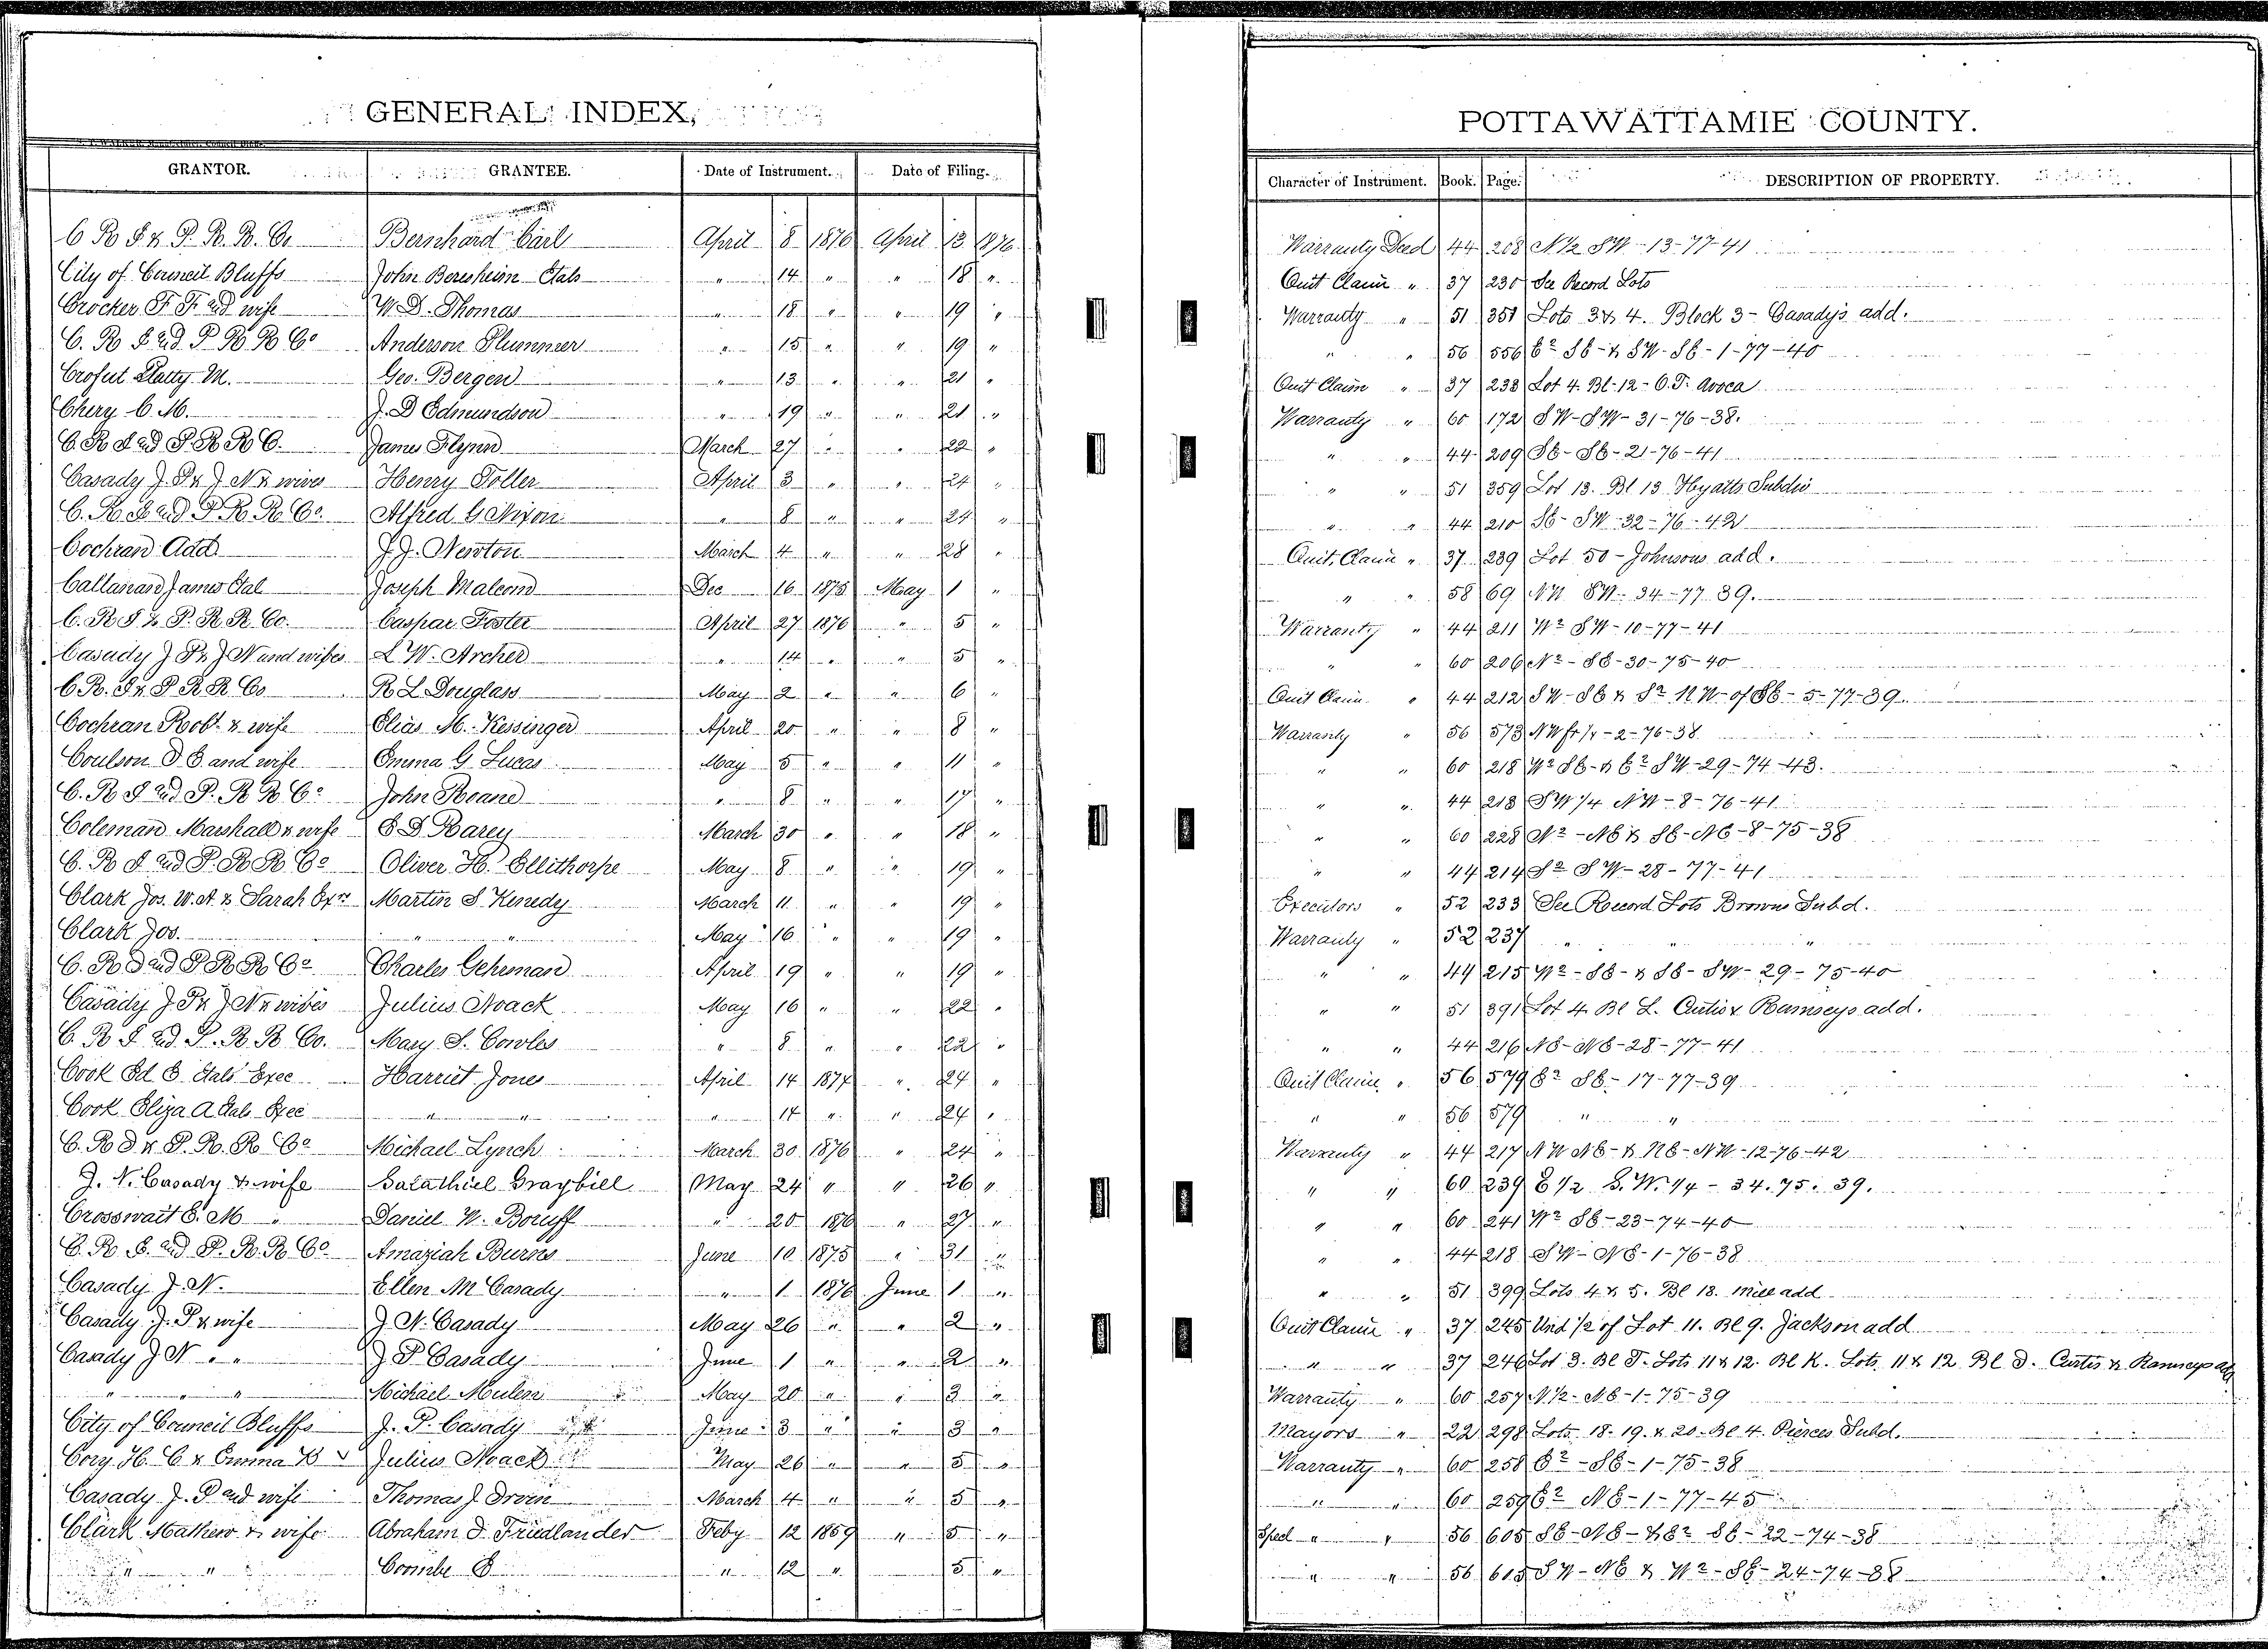 GENERAL INDEX,
POTTAWATTAMIE COUNTY.
GRANTOR. GRANTEE. Date of Instrument. Date of Filing. Character of Instrument. Book. Page. DESCRIPTION OF PROPERTY.
C R I & P. R. R. Co Bernhard Carl April 8 1876 April 13 1876 Warranty Deed 44 208 N½ SW - 13-77-41
City of Council Bluffs John Beresheim Etals " 14 " " 18 " Quit Claim " 37 230 See Record Lots
Crocker F. F. and wife W. D. Thomas " 18 " " 19 " Warranty " 51 351 Lots 3 & 4. Block 3 - Casadys add.
C. R I and P R R Co Anderson Plummer " 15 " " 19 " " " 56 556 E2 SE - & SW - SE - 1-77-40
Crofut Hatty M. Geo. Bergen " 13 " " 21 " Quit Claim " 37 238 Lot 4. Bl-12 - O.T. Avoca
Chery C. M. J. D Edmundson " 19 " " 21 " Warranty " 60 172 SW-SW- 31-76-38.
C. R I and P. R R C. James Flynn March 27 " " 22 " " " 44 209 SE-SE-21-76-41
Casady J. P. & J N & wives Henry Toller April 3 " " 24 " " " 51 359 Lot 13. Bl 13 Hyatts Subdiv
C. R I and P. R. R. Co. Alfred G Nixon " 8 " " 24 " " " 44 210 SE-SW-32-76-42
Cochran Add J. J. Newton March 4 " " 28 " Quit Claim " 37 239 Lot 50 - Johnsons add.
Callanan James Etal Joseph Malcond Dec 16 1875 May 1 " " " 58 69 NW SW - 34-77 39.
C. R I & P. R. R. Co. Caspar Foster April 27 1876 " 5 " Warranty " 44 211 W2 SW-10-77-41
Casady J P & J N and wifes L W. Archer " 14 " " 5 " " " 60 206 N2 - SE-30-75-40
C R. I & P R R Co R L Douglass May 2 " " 6 " Quit Claim " 44 212 SW-SE & S2 NW of SE - 5-77-39.
Cochran Robt. & wife Elias M. Kessinger April 20 " " 8 " Warranty " 56 573 NW fr ¼ - 2-76-38
Coulson D E and wife Emma G. Lucas May 5 " " 11 " " " 60 218 W2 SE - & E2 SW-29-74-43.
C. R I and P. R R Co John Roane " 8 " " 17 " " " 44 213 SW ¼ NW-8-76-41
Coleman Marshall & wife E D Rarey March 30 " " 18 " " " 60 228 N2 - NE & SE-NE-8-75-38
C. R I and P. R R Co Oliver H. Ellithorpe May 8 " " 19 " " " 44 214 S2 SW-28-77-41
Clark Jos. W. A. & Sarah Exrs Martin S. Kenedy March 11 " " 19 " Executors " 52 233 See Record Lots Browns Subd.
Clark Jos. " " May 16 " " 19 " Warranty " 52 237 " " "
C. R I and P R R Co Charles Gehrman April 19 " " 19 " " " 44 215 W2 - SE - & SE - SW - 29-75-40
Casady J. P. & J N & wives Julius Noack May 16 " " 22 " " " 51 391 Lot 4. Bl L. Curtis & Ramseys add.
C. R I and P. R. R Co. Mary S. Cowles " 8 " " 22 " " " 44 216 NE-NE-28-77-41
Cook Ed E. Etals Exec Harriet Jones April 14 1874 " 24 " Quit Claim " 56 579 E2 SE - 17-77-39
Cook Eliza A Etals Exec " " " 14 " " 24 " " " 56 579 " "
C. R I & P. R. R Co Michael Lynch March 30 1876 " 24 " Warranty " 44 217 NW NE - & NE-NW-12-76-42
J. N. Casady & wife Salathiel Graybill May 24 " " 26 " " " 60 239 E ½ S. W. ¼ - 34. 75. 39.
Crosswait E. M " Daniel W. Boruff " 20 1876 " 27 " " " 60 241 W2 SE-23-74-40
C. R. I. and P. R. R Co Amaziah Burns June 10 1875 " 31 " " " 44 218 SW-NE-1-76-38
Casady J. N. Ellen M Casady " 1 1876 June 1 " " " 51 399 Lots 4 & 5. Bl 13. Mill add
Casady J. P & wife J. N. Casady May 26 " " 2 " Quit Claim " 37 245 Und ½ of Lot 11. Bl 9. Jackson add
Casady J N " " J P Casady June 1 " " 2 " " " 37 246 Lot 3. Bl F. Lots 11 & 12. Bl K. Lots 11 & 12 Bl D. Curtis & Ramseys add
" " Michael Mulen May 20 " " 3 " Warranty " 60 257 N½ - NE-1-75-39
City of Council Bluffs J. P. Casady June 3 " " 3 " Mayors " 22 298 Lots 18. 19. & 20. Bl 4. Pierces Subd.
Cory H. C & Emma B Julius Noack May 26 " " 5 " Warranty " 60 258 E2 - SE-1-75-38
Casady J. P and wife Thomas J. Irvin March 4 " " 5 " " " 60 259 E2 NE-1-77-45
Clark Mathew & wife Abraham D. Friedlander Feby 12 1869 " 5 " Specl " " 56 605 SE-NE - & E2 SE-22-74-38
" " Coombe B " 12 " 5 " " " 56 615 SW-NE & W2-SE-24-74-38